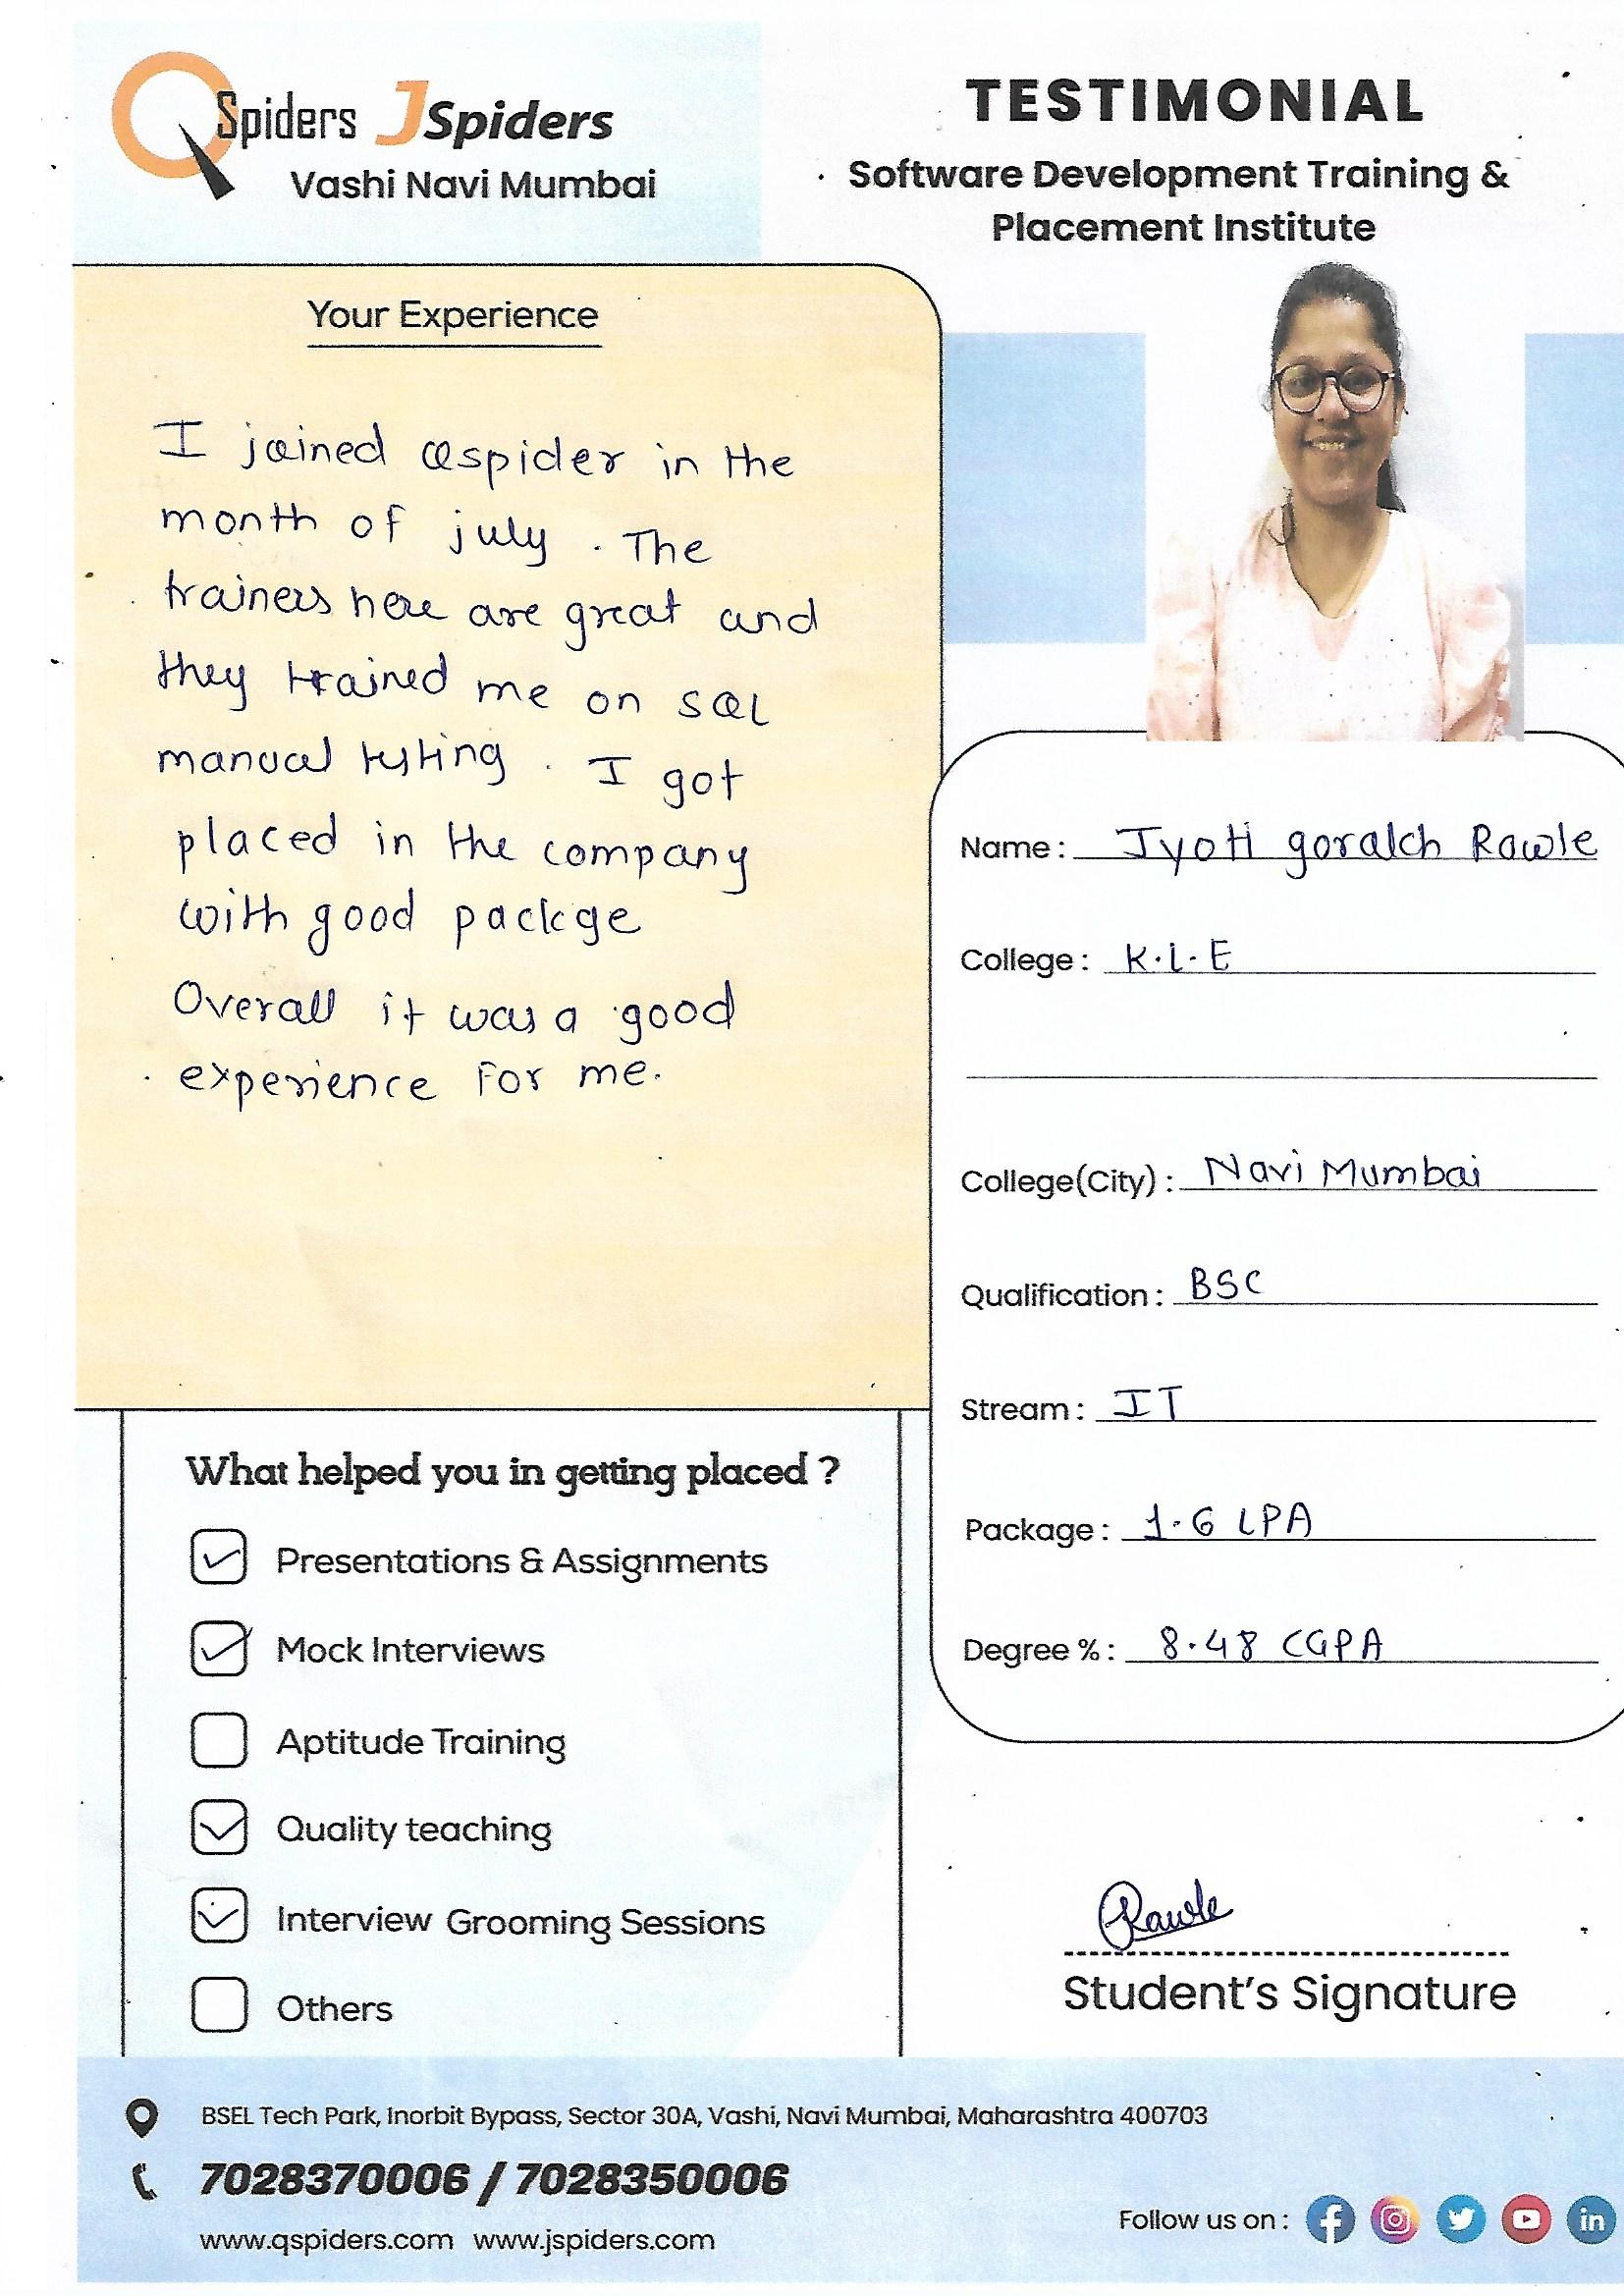 QSpiders JSpiders
Vashi Navi Mumbai
TESTIMONIAL
Software Development Training &
Placement Institute
Your Experience
I joined Qspider in the
month of july . The
trainers here are great and
they trained me on SQL
manual testing . I got
placed in the company
with good packge
Overall it was a good
experience for me.
Name : Jyoti gorakh Rawle
College : K.L.E
College(City) : Navi Mumbai
Qualification : BSC
Stream : IT
Package : 1.6 LPA
Degree % : 8.48 CGPA
What helped you in getting placed ?
Presentations & Assignments
Mock Interviews
Aptitude Training
Quality teaching
Interview Grooming Sessions
Others
Rawle
Student's Signature
BSEL Tech Park, Inorbit Bypass, Sector 30A, Vashi, Navi Mumbai, Maharashtra 400703
7028370006 / 7028350006
www.qspiders.com www.jspiders.com
Follow us on :